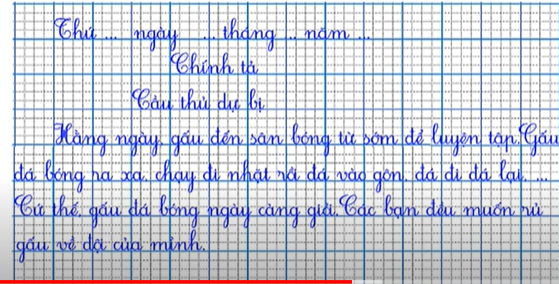 Thứ ... ngày ... tháng ... năm ...
Chính tả
Cầu thủ dự bị
Hằng ngày, gấu đến sân bóng từ sớm để luyện tập. Gấu
đá bóng ra xa, chạy đi nhặt rồi đá vào gôn, đá đi đá lại, ...
Cứ thế, gấu đá bóng ngày càng giỏi. Các bạn đều muốn rủ
gấu về đội của mình.